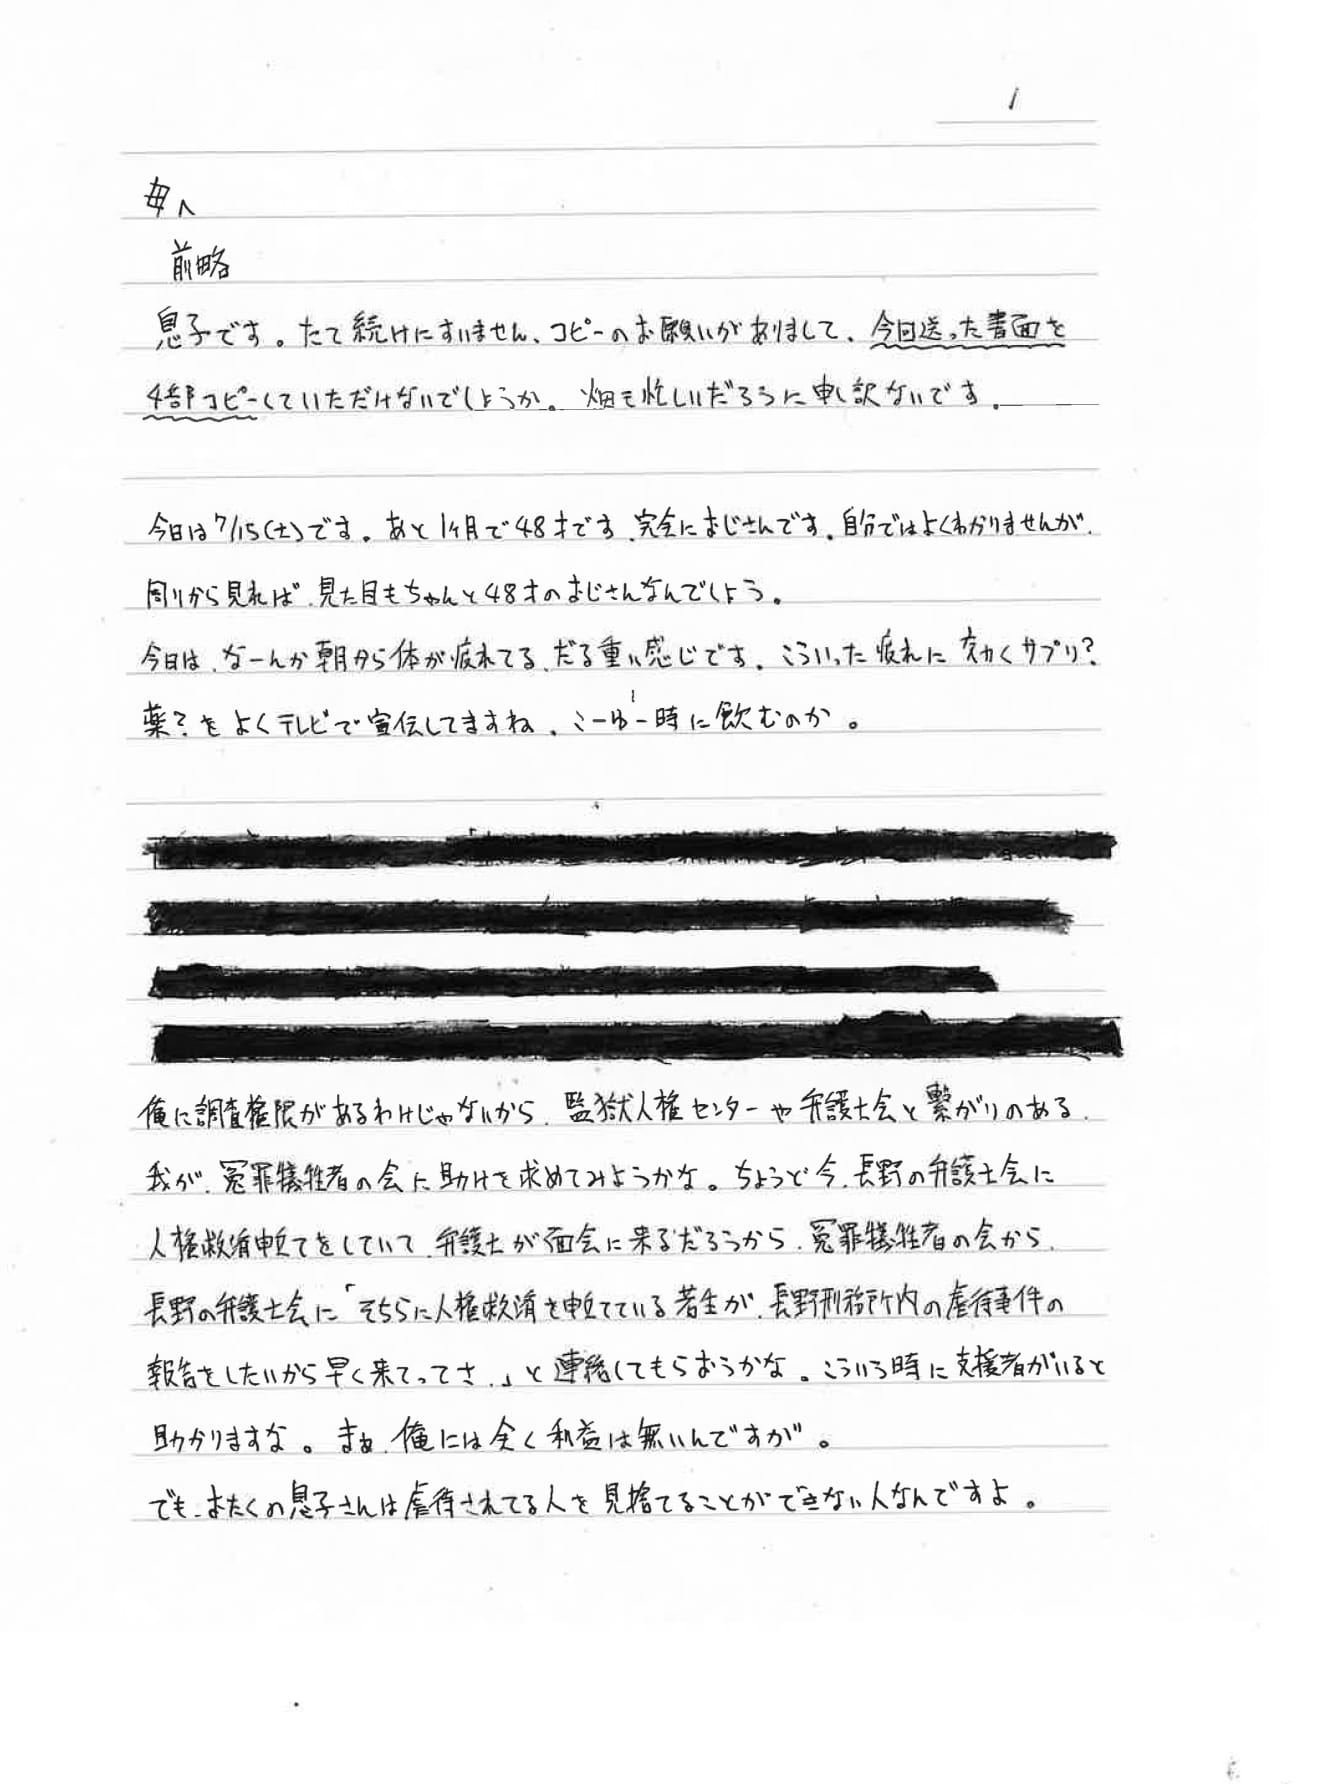 1
母へ
前略
息子です。たて続けにすいません、コピーのお願いがありまして、今回送った書面を
4部コピーしていただけないでしょうか。畑も忙しいだろうに申し訳ないです。
今日は7/15(土)です。あと1ヶ月で48才です、完全におじさんです。自分ではよくわかりませんが、
周りから見れば、見た目もちゃんと48才のおじさんなんでしょう。
今日は、なーんか朝から体が疲れてる、だる重い感じです。こういった疲れに効くサプリ?
薬?をよくテレビで宣伝してますね、こーゆー時に飲むのか。
俺に調査権限があるわけじゃないから、監獄人権センターや弁護士会と繋がりのある、
我が、冤罪犠牲者の会に助けを求めてみようかな。ちょうど今、長野の弁護士会に
人権救済申立てをしていて、弁護士が面会に来るだろうから、冤罪犠牲者の会から、
長野の弁護士会に「そちらに人権救済を申立てている若生が、長野刑務所内の虐待事件の
報告をしたいから早く来てってさ。」と連絡してもらおうかな。こういう時に支援者がいると
助かりますな。まぁ、俺には全く利益は無いんですが。
でも、おたくの息子さんは虐待されてる人を見捨てることができない人なんですよ。